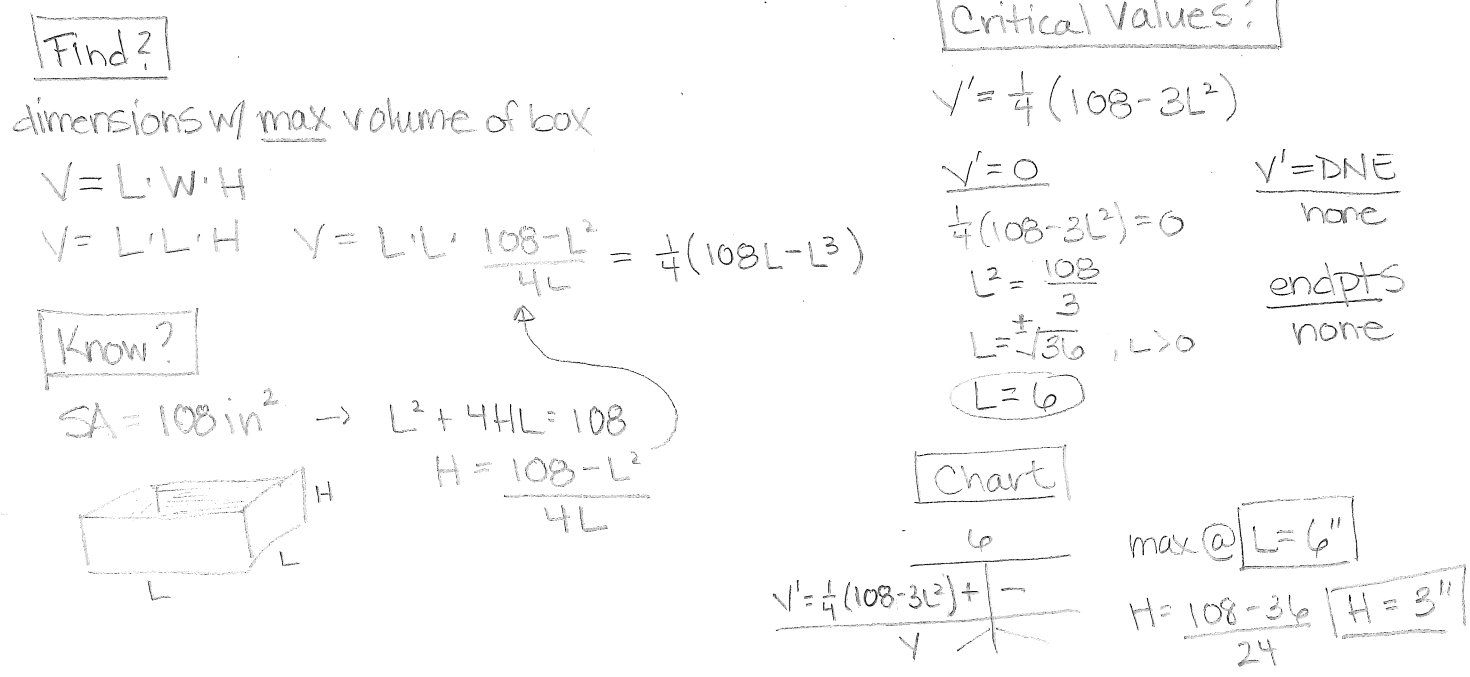 Find?
dimensions w/ max volume of box
V = L·W·H
V = L·L·H V = L·L· (108-L²)/4L = 1/4(108L-L³)
Know?
SA = 108 in² → L² + 4HL = 108
H = (108-L²)/4L
H
L
L
Critical Values?
V' = 1/4(108-3L²)
V'=0
1/4(108-3L²)=0
L² = 108/3
L = ±√36, L>0
L=6
V'=DNE
none
endpts
none
Chart
6
V'=1/4(108-3L²) + | -
V
max @ L=6"
H = (108-36)/24 H = 3"